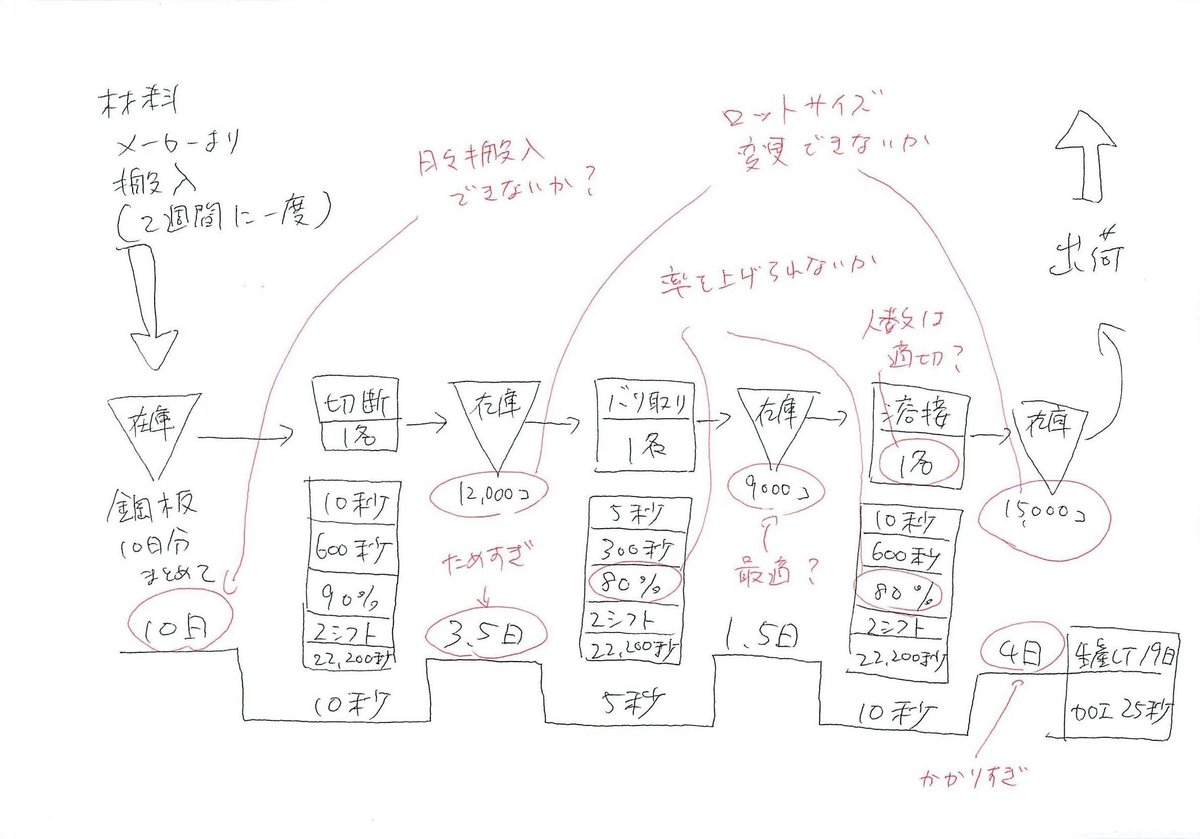 材料
メーカーより
搬入
(2週間に一度)
日々搬入
できないか?
ロットサイズ
変更できないか
出荷
率を上げられないか
人数は
適切?
在庫
鋼板
10日分
まとめて
10日
切断
1名
10秒
600秒
90%
2シフト
22,200秒
10秒
在庫
12,000コ
ためすぎ
3.5日
バリ取り
1名
5秒
300秒
80%
2シフト
22,200秒
5秒
在庫
9000コ
最適?
1.5日
溶接
1名
10秒
600秒
80%
2シフト
22,200秒
10秒
在庫
15,000コ
4日
かかりすぎ
生産LT 19日
加工 25秒